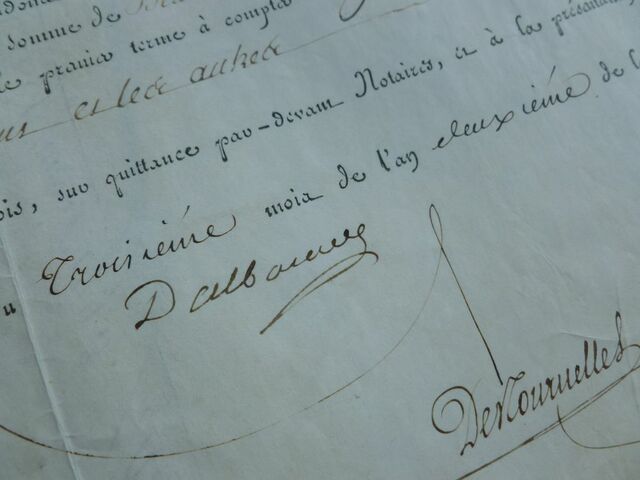 somme de
premier terme à compter
et les autres
sur quittance par-devant Notaires, et à la présentat
Troisiéme mois de l'an deuxiéme de l
Dalbarade
DeNournelles